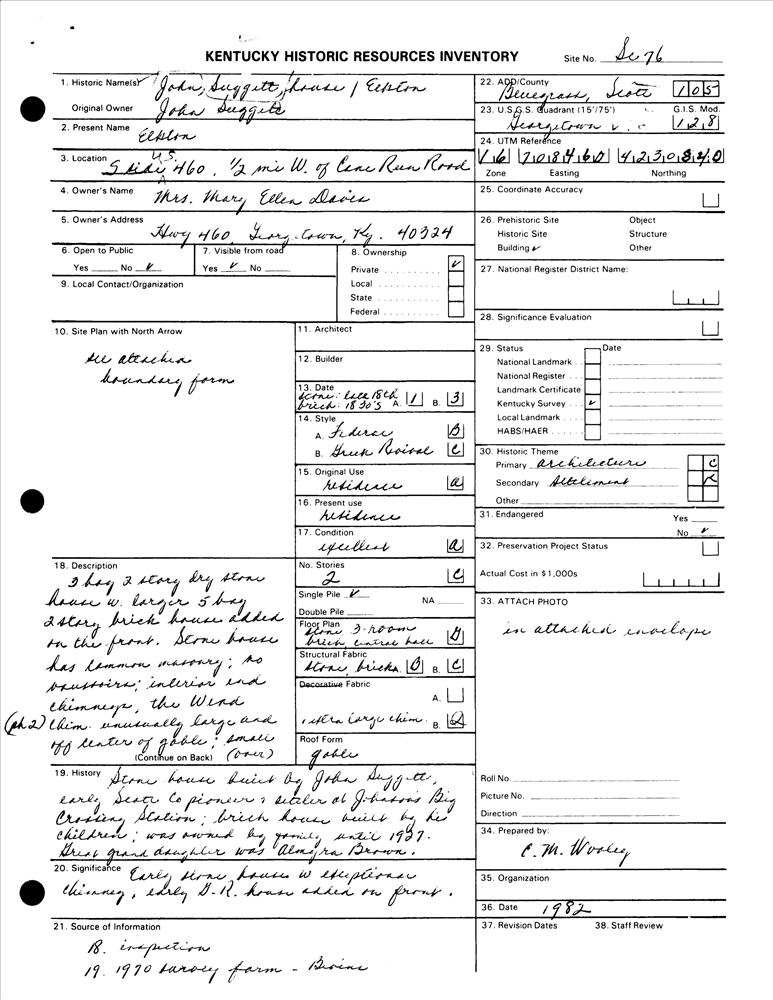 KENTUCKY HISTORIC RESOURCES INVENTORY
Site No. Sc 76
1. Historic Name(s) John Suggett house / Elkton
Original Owner John Suggett
2. Present Name Elkton
3. Location S side U.S. 460, 1/2 mi W. of Cane Run Road
4. Owner's Name Mrs. Mary Ellen Davis
5. Owner's Address Hwy 460, Georgetown, Ky. 40324
6. Open to Public
Yes No ✓
7. Visible from road
Yes ✓ No
8. Ownership
Private ✓
Local
State
Federal
9. Local Contact/Organization
10. Site Plan with North Arrow
see attached
boundary form
11. Architect
12. Builder
13. Date
stone: late 18th
brick: 1830's A. 1 B. 3
14. Style
A. Federal B
B. Greek Revival C
15. Original Use
residence a
16. Present use
residence
17. Condition
excellent a
18. Description
3 bay 2 story dry stone
house w. larger 5 bay
2 story brick house added
on the front. Stone house
has common masonry; no
voussoirs; interior end
chimneys, the West
(ph 2) chim. unusually large and
off center of gable; small
(Continue on Back) (over)
No. Stories
2 C
Single Pile ✓ NA
Double Pile
Floor Plan
stone 3-room
brick, central hall G
Structural Fabric
stone, brick A. B B. C
Decorative Fabric
A.
extra large chim. B. 2
Roof Form
gable
19. History Stone house built by John Suggett,
early Scott Co pioneer & settler at Johnson's Big
Crossing Station; brick house built by his
children; was owned by family until 1927.
Great grand daughter was Almyra Brown.
20. Significance Early stone house w exceptional
chimney, early G.R. house added on front.
21. Source of Information
18. inspection
19. 1970 survey form - Bevins
22. ADD/County
Bluegrass, Scott 105
23. U.S.G.S. Quadrant (15'/75') G.I.S. Mod.
Georgetown 128
24. UTM Reference
16 708460 4230820
Zone Easting Northing
25. Coordinate Accuracy
26. Prehistoric Site Object
Historic Site Structure
Building ✓ Other
27. National Register District Name:
28. Significance Evaluation
29. Status Date
National Landmark
National Register
Landmark Certificate
Kentucky Survey ✓
Local Landmark
HABS/HAER
30. Historic Theme
Primary architecture C
Secondary settlement
Other
31. Endangered Yes
No ✓
32. Preservation Project Status
Actual Cost in $1,000s
33. ATTACH PHOTO
in attached envelope
Roll No.
Picture No.
Direction
34. Prepared by:
C. M. Wooley
35. Organization
36. Date 1982
37. Revision Dates 38. Staff Review